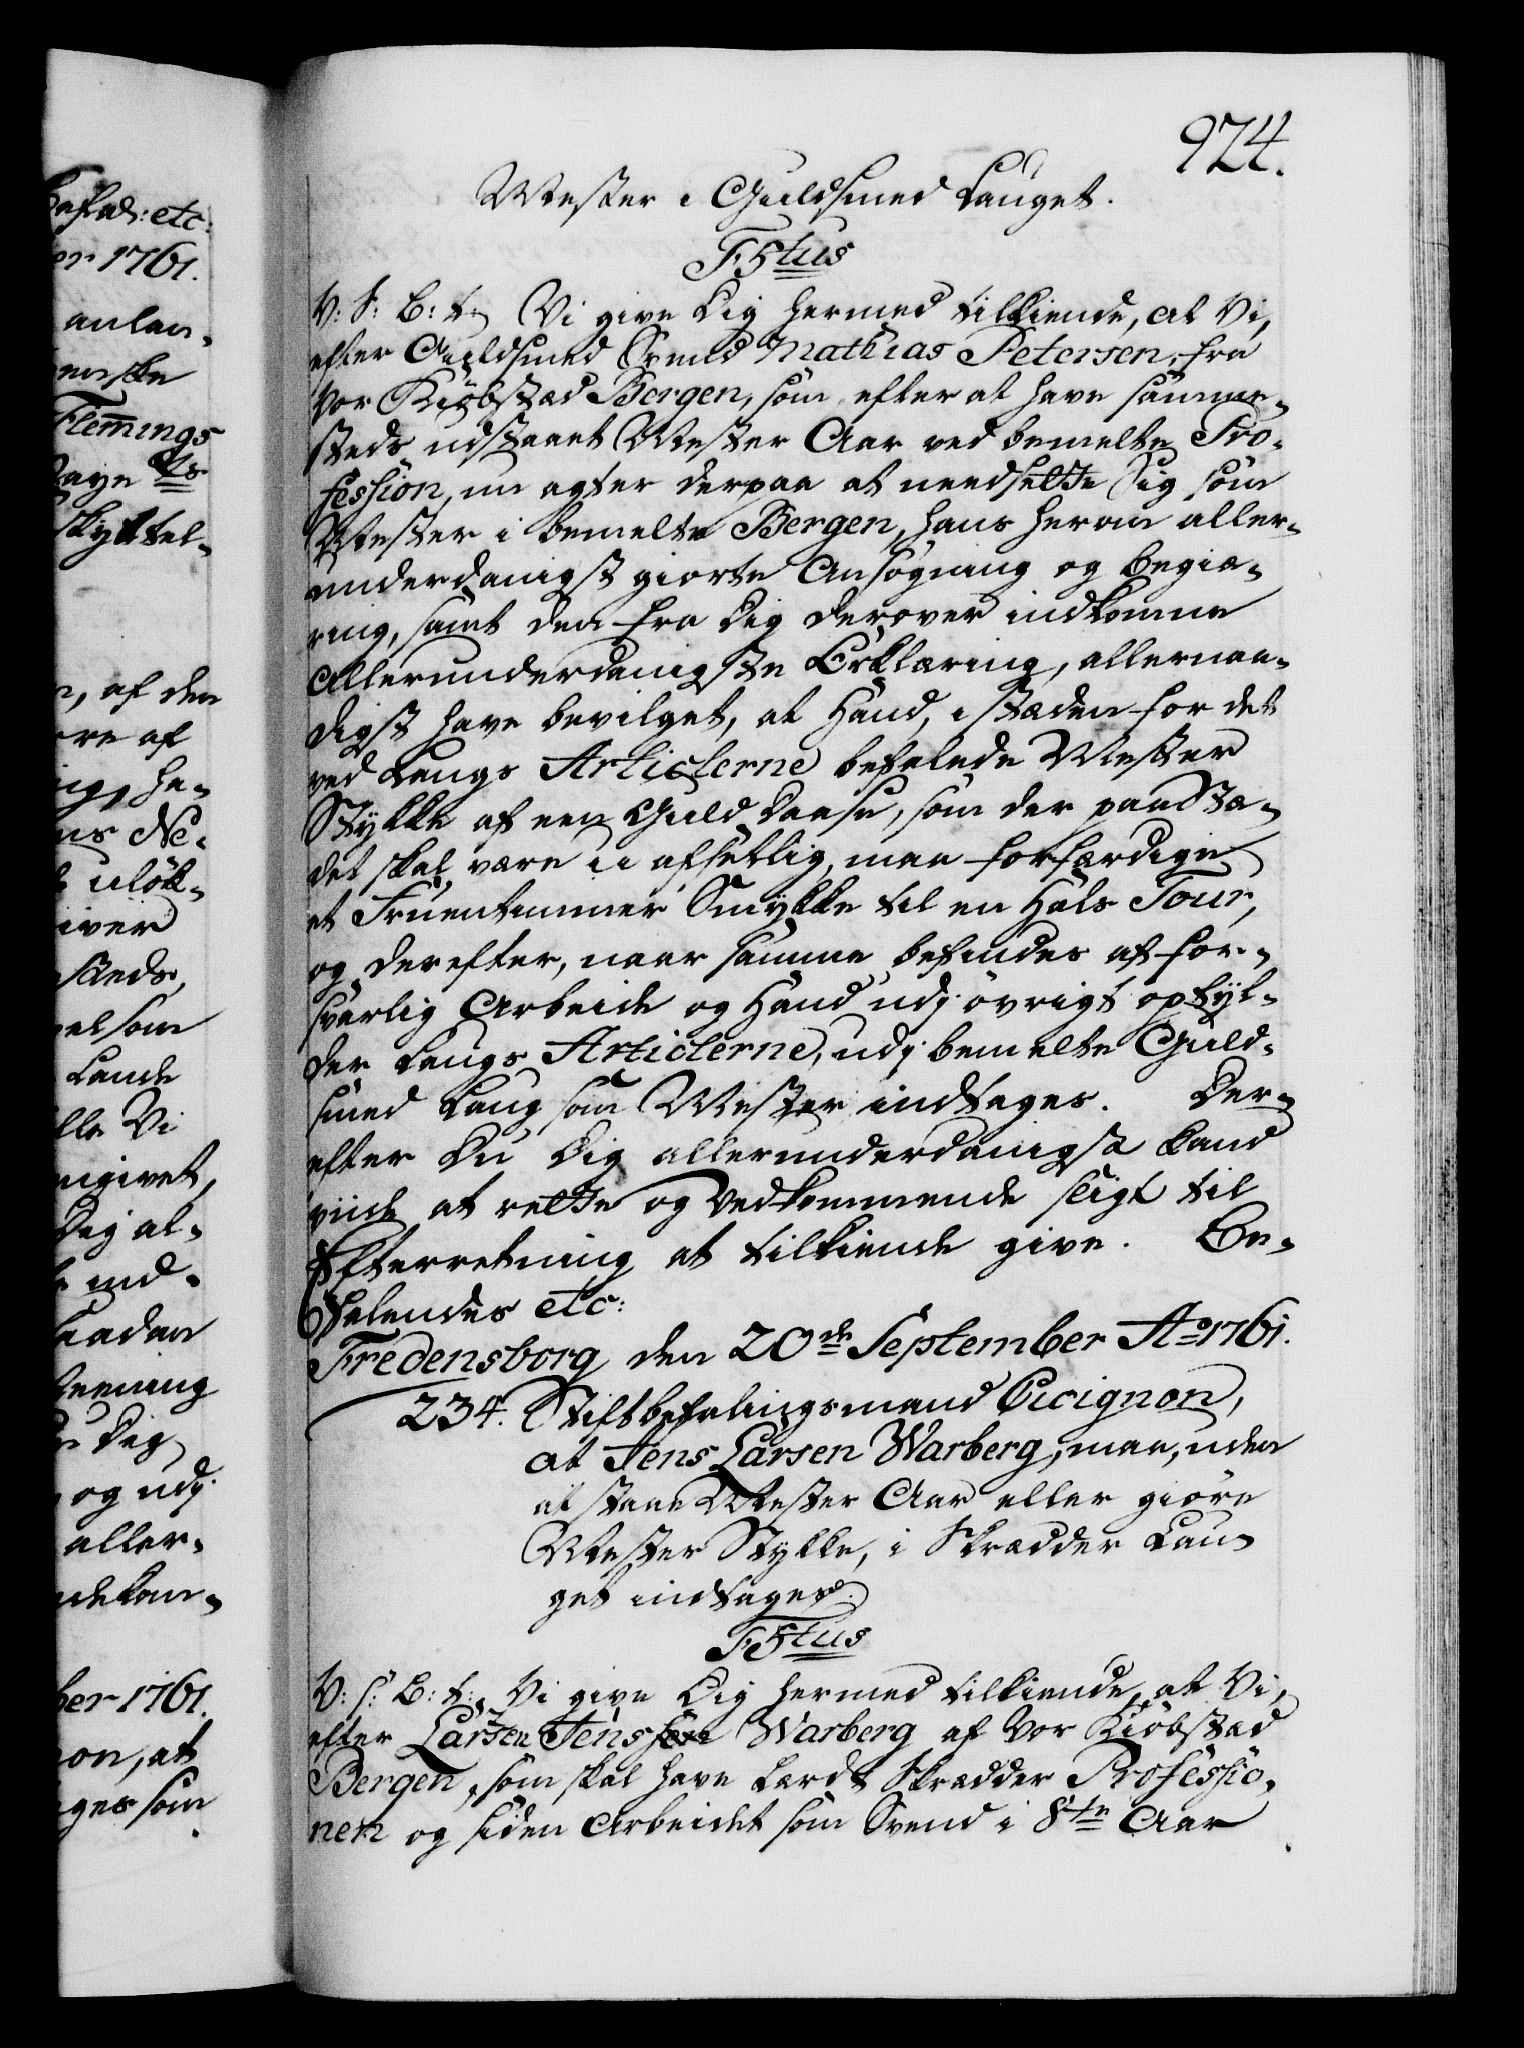 924.
Mester i Guldsmed Lauget.
F5tus
V: S: B: t: Vi give Dig hermed tilkiende, at Vi,
efter Guldsmed Svend Mathias Petersen, fra
Vor Kiøbstæd Bergen, som, efter at have samme-
steds udstaaet Mester Aar ved bemelte Pro-
fession, nu agter derpaa at needsette Sig som
Mester i bemelte Bergen, hans herom aller-
underdanigst giorte Ansøgning og begiæ-
ring, samt den fra Dig derover indkomne
allerunderdanigste Erklæring, allernaa-
digst have bevilget, at Hand, i stæden for det
ved Laugs Articlerne befalede Mester
Stykke af een Guld Daase, som der paa Stæ-
det skal være u-afsetlig, maa forfærdige
et Fruentimmer Smykke til en Hals Tour,
og derefter, naar samme befindes af for-
svarlig Arbeide og Hand udj øvrigt opfyl-
der Laugs Articlerne, udj bemelte Guld-
smed Laug som Mester indtages. Der-
efter Du Dig allerunderdanigst kand
viide at rette og Vedkommende sligt til
Efterretning at tilkiende give. Be-
falendes etc:
Fredensborg den 20de September Ao 1761.
234. Stiftbefalingsmand Cicignon,
at Jens Larsen Warberg, maa, uden
at staae Mester Aar eller giøre
Mester Stykke, i Skrædder Lau-
get indtages.
F5tus
V: S: B: t: Vi give Dig hermed tilkiende, at Vi,
efter Larsen Jenssen Warberg af Vor Kiøbstæd
Bergen, som skal have lærdt Skrædder Professio-
nen og siden Arbeidet som Svend i 8te Aar
Befal: etc:
er 1761.
anlan-
enske
Flemings
skyttel-
n, af den
re af
ing, ha-
ns Ne-
iver
steds,
el som
Lande
lle Vi
ngivet,
Dig al-
ind-
saadan
eening
Dig
og udj
aller-
ber 1761.
non, at
ges som